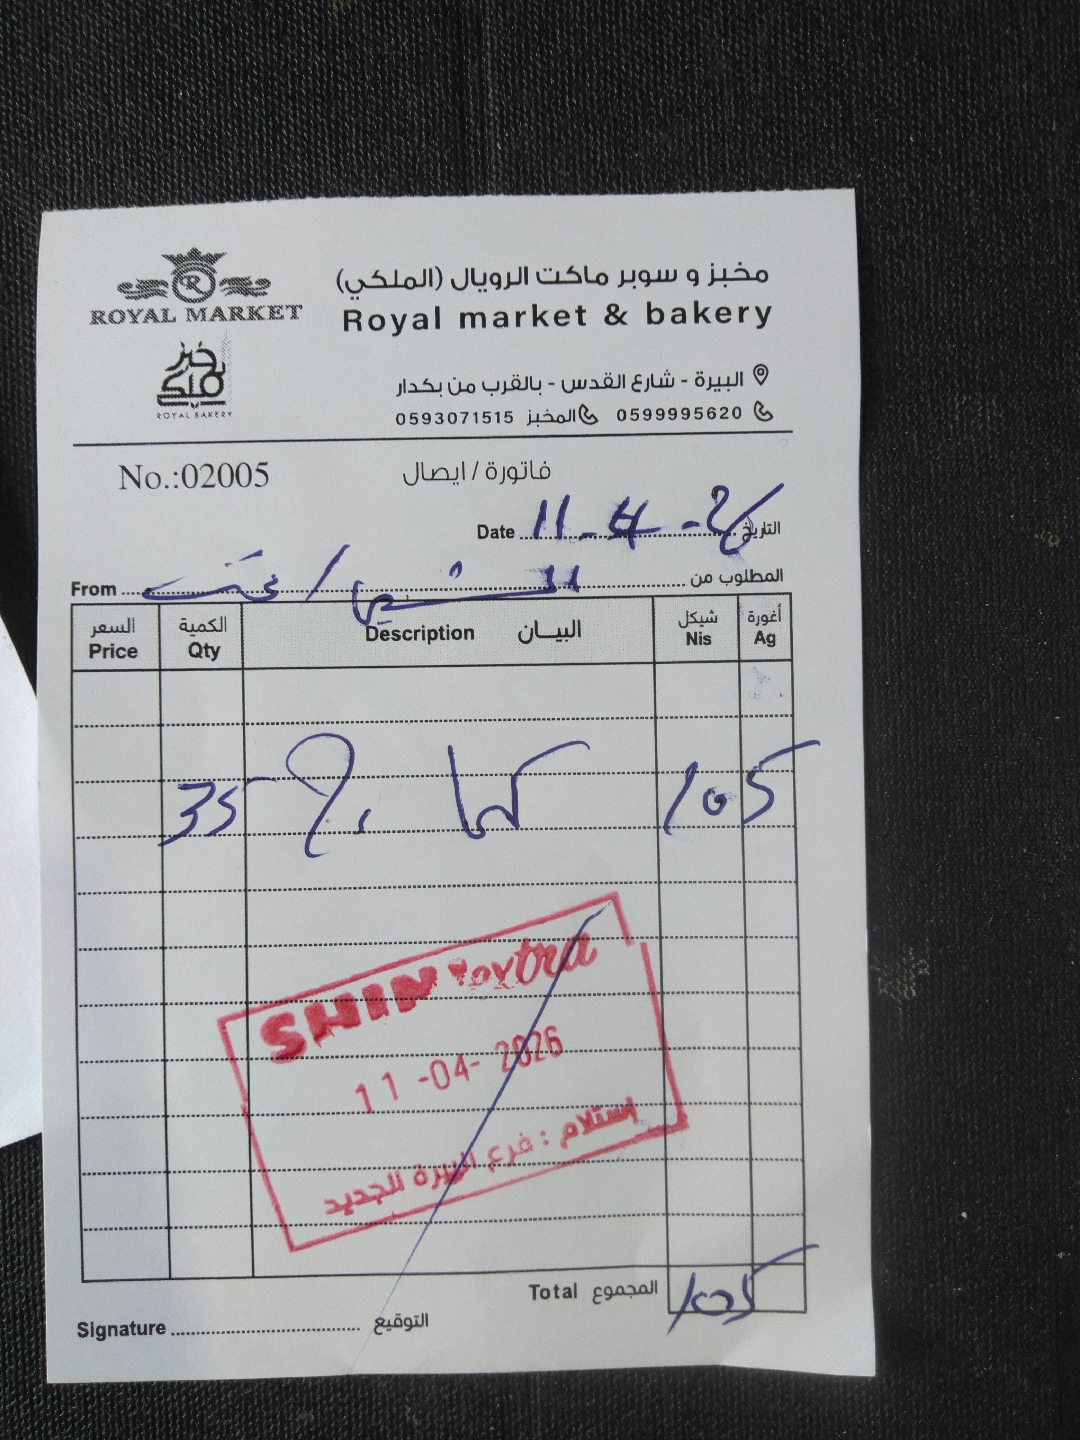 ROYAL MARKET
خبز ملكي
ROYAL BAKERY
مخبز و سوبر ماكت الرويال (الملكي)
Royal market & bakery
البيرة - شارع القدس - بالقرب من بكدار
0599995620 المخبز 0593071515
No.:02005
فاتورة / ايصال
Date 11-4-26 التاريخ
From المطلوب من
السعر Price الكمية Qty Description البيـــان شيكل Nis أغورة Ag
35 105
SHINI extra
11-04-2026
استلام : فرع البيرة الجديد
Total المجموع 105
Signature التوقيع